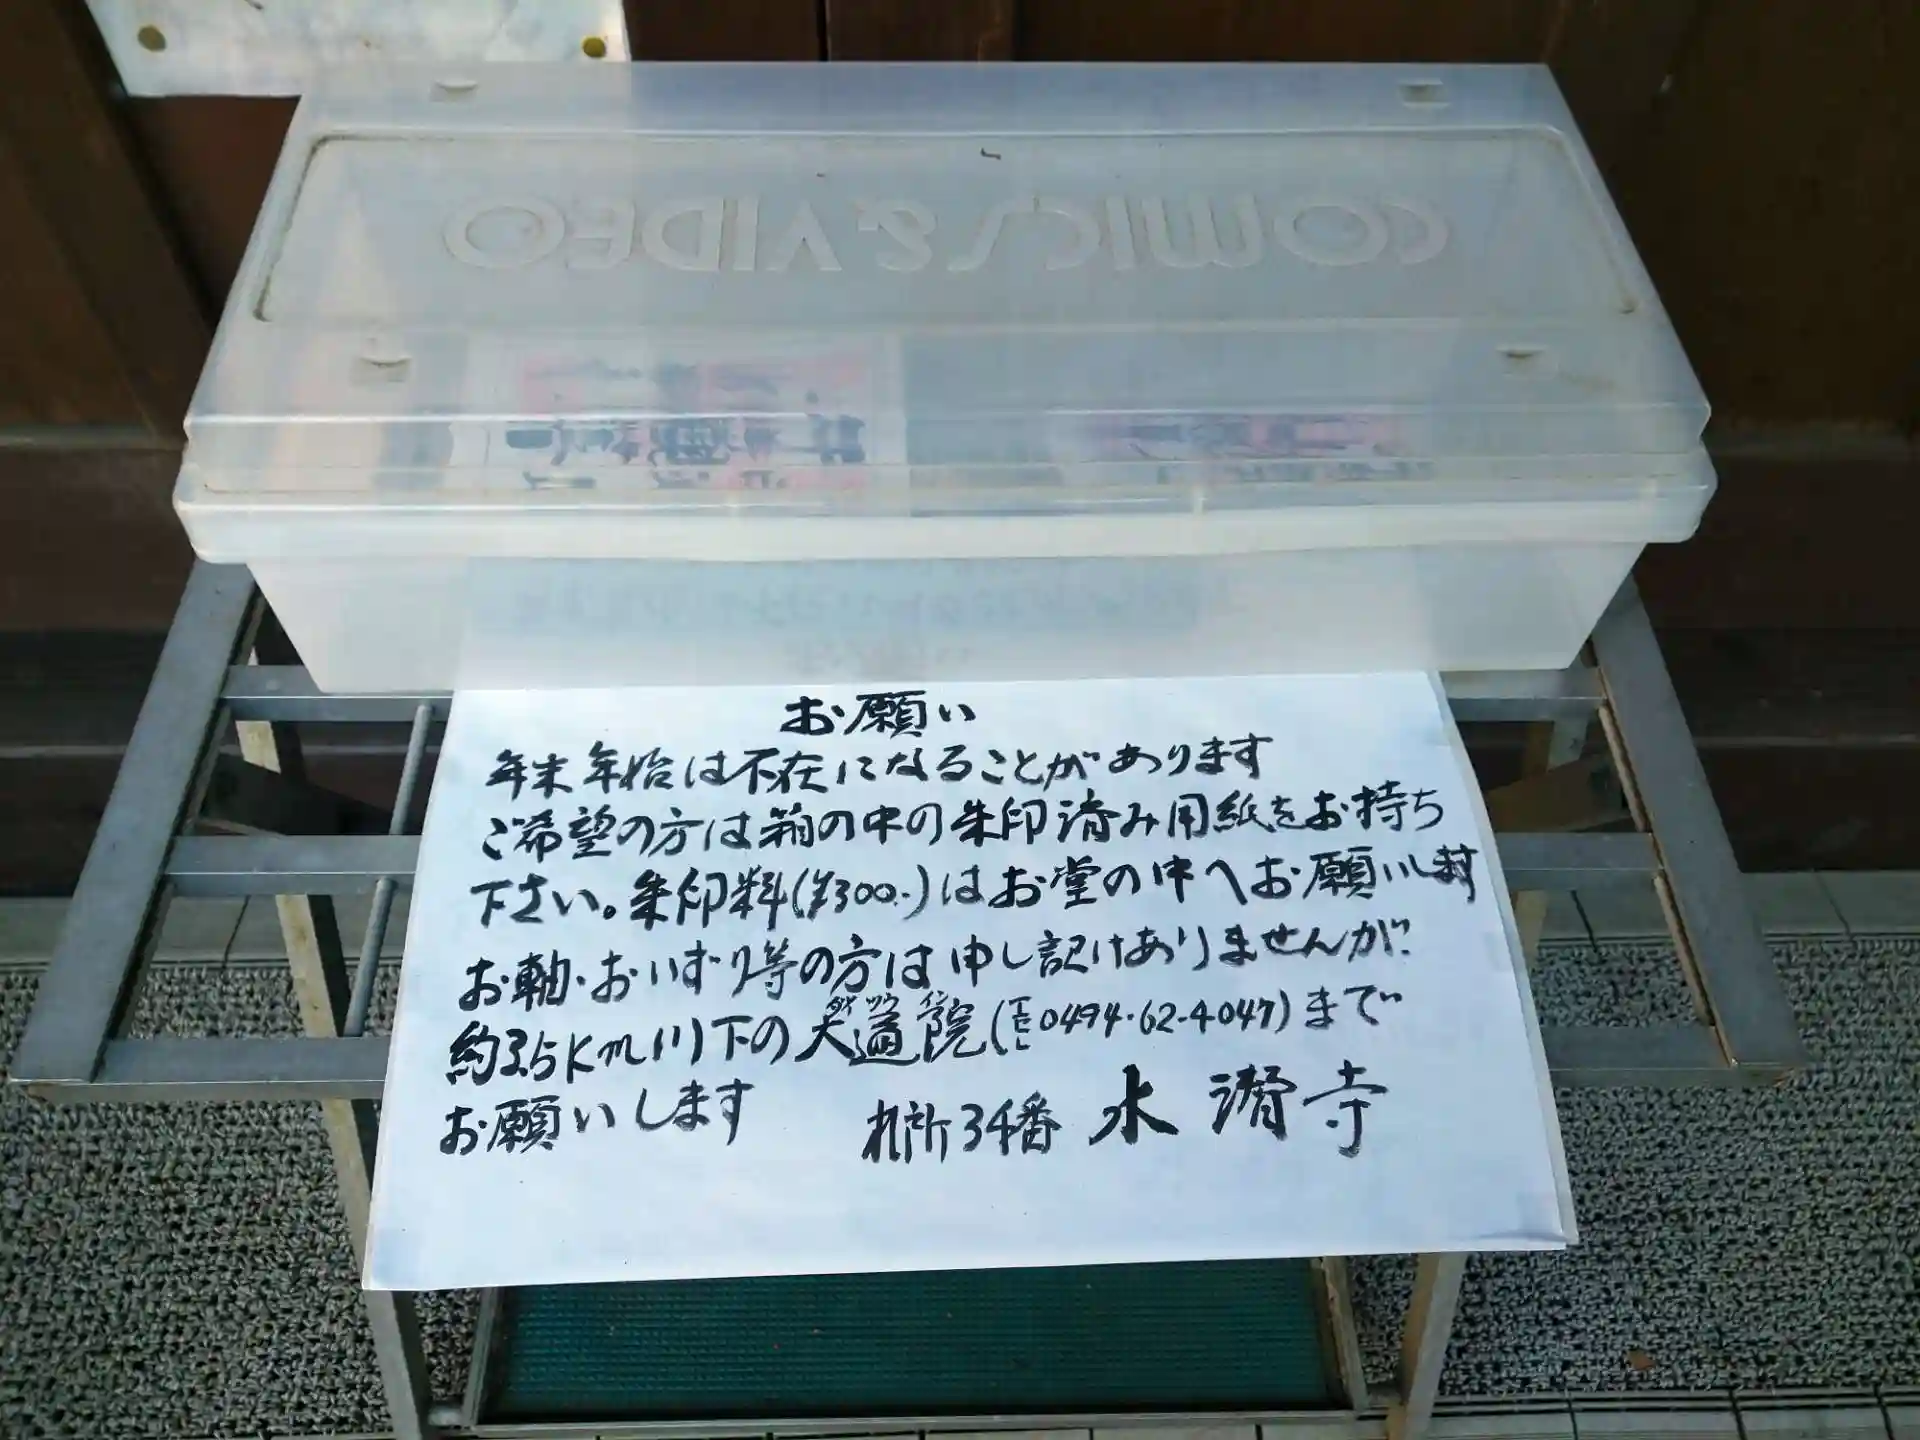 COMICS & VIDEO
お願い
年末年始は不在になることがあります
ご希望の方は箱の中の朱印済み用紙をお持ち
下さい。朱印料(¥300.-)はお堂の中へお願いします
お軸・おいずり等の方は申し訳けありませんが
約3.5km川下の大通院(TEL0494-62-4047)まで
お願いします 札所34番 水潜寺